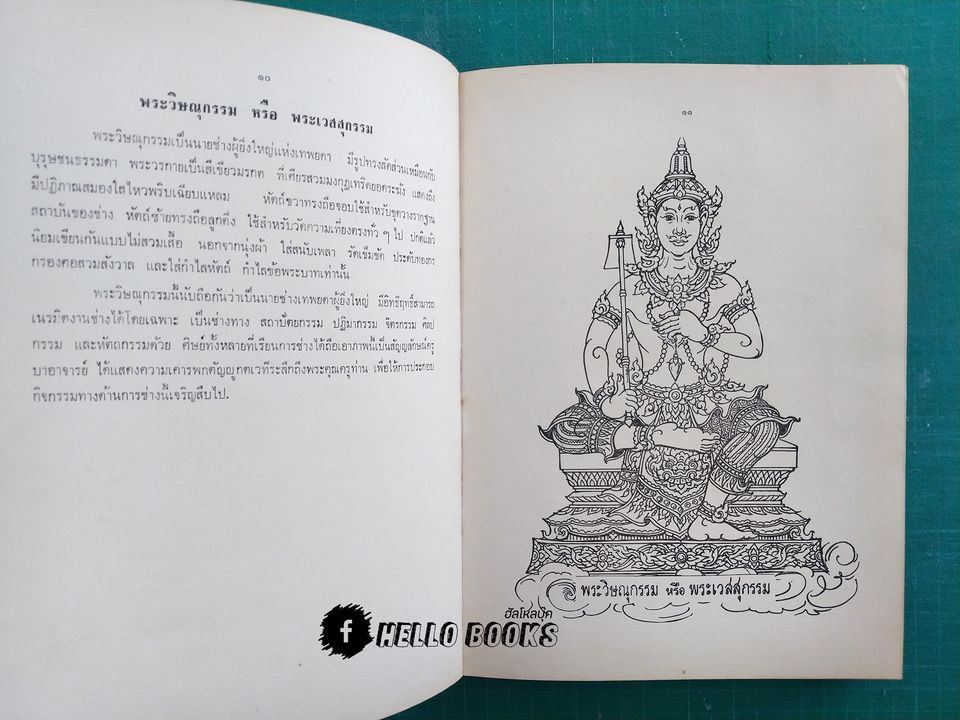 ๑๐
พระวิษณุกรรม หรือ พระเวสสุกรรม
พระวิษณุกรรมเป็นนายช่างผู้ยิ่งใหญ่แห่งเทพยดา มีรูปทรงสัดส่วนเหมือนกับ
บุรุษชนธรรมดา พระวรกายเป็นสีเขียวมรกต ที่เศียรสวมมงกุฎเทริดยอดระฆัง แสดงถึง
มีปฏิภาณสมองใสไหวพริบเฉียบแหลม หัตถ์ขวาทรงถือจอบใช้สำหรับขุดวางรากฐาน
สถาบันของช่าง หัตถ์ซ้ายทรงถือลูกดิ่ง ใช้สำหรับวัดความเที่ยงตรงทั่ว ๆ ไป ปกติแล้ว
นิยมเขียนกันแบบไม่สวมเสื้อ นอกจากนุ่งผ้า ใส่สนับเพลา รัดเข็มขัด ประดับทองกร
กรองศอสวมสังวาล และใส่กำไลหัตถ์ กำไลข้อพระบาทเท่านั้น
พระวิษณุกรรมนี้นับถือกันว่าเป็นนายช่างเทพยดาผู้ยิ่งใหญ่ มีอิทธิฤทธิ์สามารถ
เนรมิตงานช่างได้โดยเฉพาะ เป็นช่างทาง สถาปัตยกรรม ปฏิมากรรม จิตรกรรม ศิลป
กรรม และหัตถกรรมด้วย ศิษย์ทั้งหลายที่เรียนการช่างได้ถือเอาภาพนี้เป็นสัญญลักษณ์ครู
บาอาจารย์ ได้แสดงความเคารพกตัญญูกตเวทีระลึกถึงพระคุณครูท่าน เพื่อให้การประกอบ
กิจกรรมทางด้านการช่างนี้เจริญสืบไป.
๑๑
พระวิษณุกรรม หรือ พระเวสสุกรรม
ฮัลโหลบุ๊ค
f HELLO BOOKS